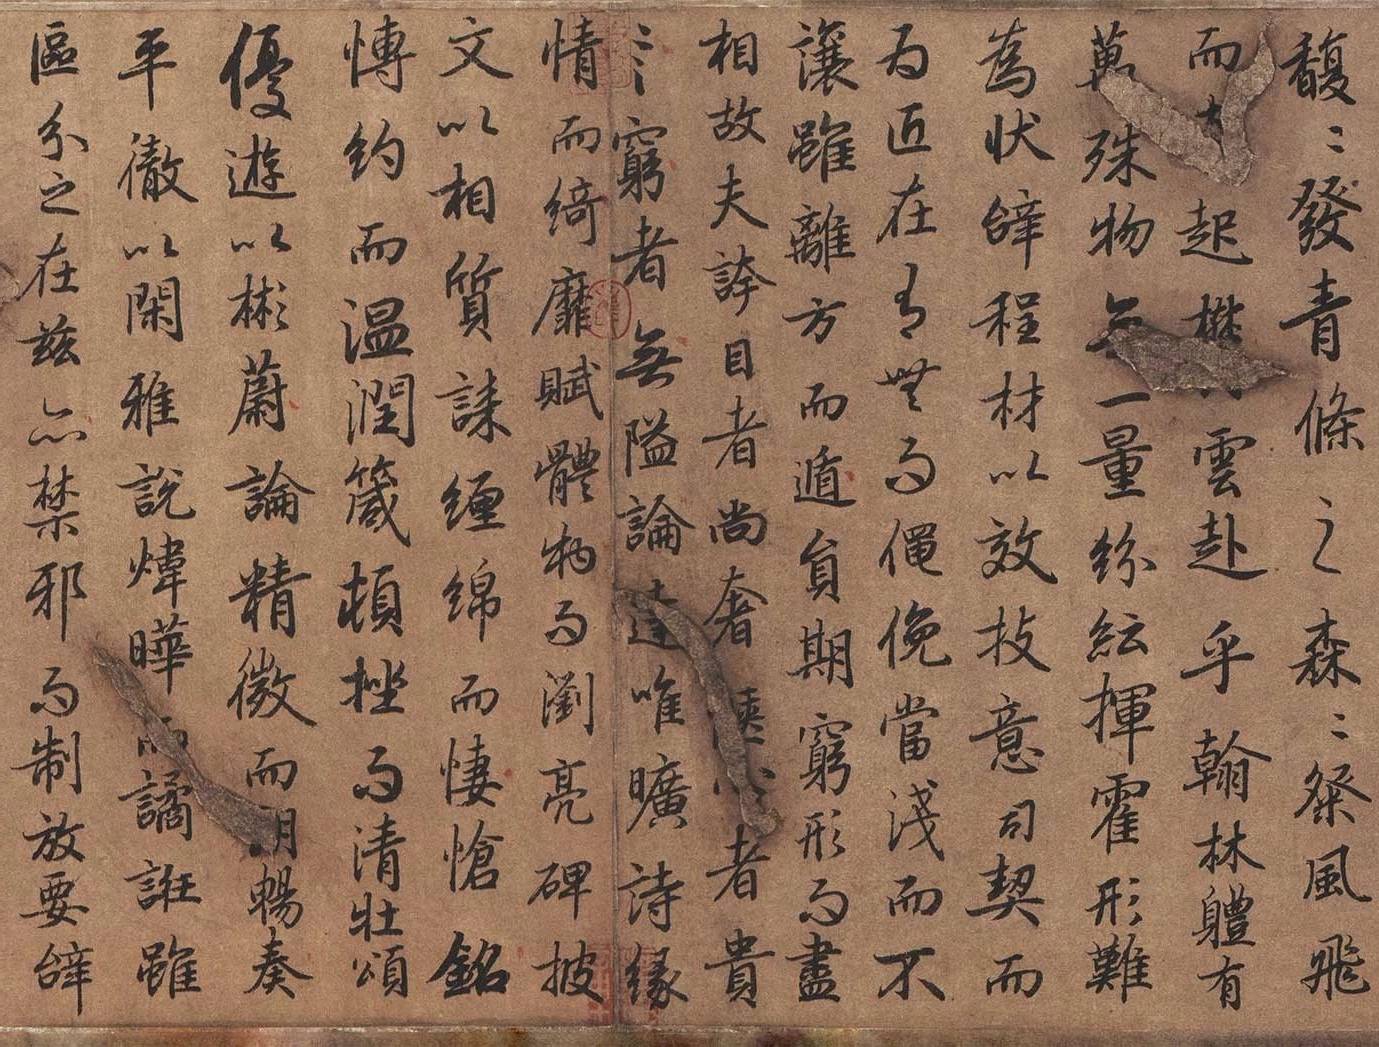 馥〻發青條之森〻粲風飛
而起雲赴乎翰林體有
萬殊物一量紛紜揮霍形難
為狀辭程材以效技意司契而
為匠在有無而僶俛當淺而不
讓雖離方而遯員期窮形而盡
相故夫誇目者尚奢者貴
〻窮者無隘論達唯曠詩緣
情而綺靡賦體物而瀏亮碑披
文以相質誄纏綿而悽愴銘
博約而溫潤箴頓挫而清壯頌
優遊以彬蔚論精微而朗暢奏
平徹以閑雅說煒曄而譎誑雖
區分之在茲亦禁邪而制放要辭